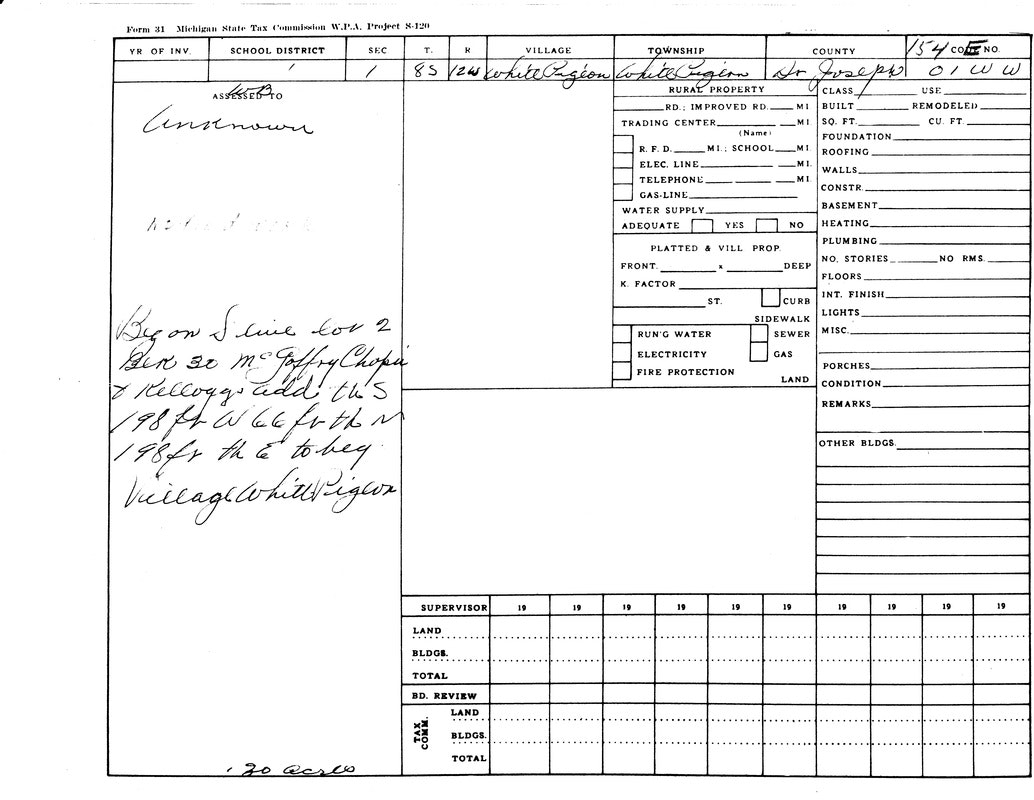 Form 31 Michigan State Tax Commission W.P.A. Project S-120
YR OF INV. SCHOOL DISTRICT SEC T. R VILLAGE TOWNSHIP COUNTY 154 E CODE NO.
1 1 8S 12W White Pigeon White Pigeon St Joseph 01 W W
WB
ASSESSED TO
Unknown
Beg on S line lot 2
Blk 30 McGoffry Chapin
& Kelloggs add th S
198 ft W 66 ft th N
198 ft th E to beg
Village White Pigeon
.30 acres
RURAL PROPERTY
RD.; IMPROVED RD. MI.
TRADING CENTER MI.
(Name)
R. F. D. MI.; SCHOOL MI.
ELEC. LINE MI.
TELEPHONE MI.
GAS-LINE
WATER SUPPLY
ADEQUATE YES NO
PLATTED & VILL PROP.
FRONT. x DEEP
K. FACTOR
ST. CURB
SIDEWALK
RUN'G WATER SEWER
ELECTRICITY GAS
FIRE PROTECTION
LAND
CLASS USE
BUILT REMODELED
SQ. FT. CU. FT.
FOUNDATION
ROOFING
WALLS
CONSTR.
BASEMENT
HEATING
PLUMBING
NO. STORIES NO RMS.
FLOORS
INT. FINISH
LIGHTS
MISC.
PORCHES
CONDITION
REMARKS
OTHER BLDGS.
SUPERVISOR 19 19 19 19 19 19 19 19 19 19
LAND
BLDGS.
TOTAL
BD. REVIEW
TAX COMM.
LAND
BLDGS.
TOTAL